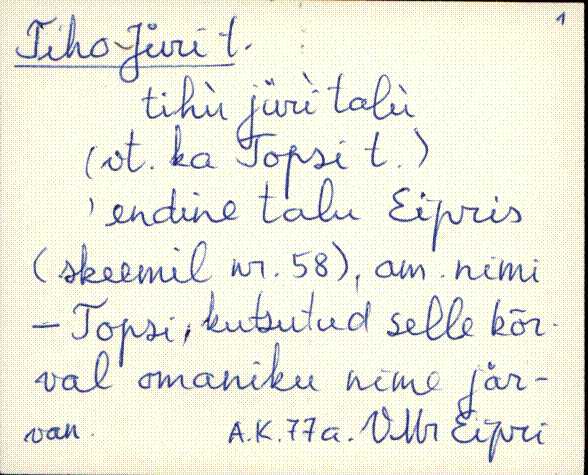 1
Tiho-Jüri t.
tihù jürì talù
(vt. ka Topsi t.)
'endine talu Eipris
(skeemil nr. 58), am. nimi
- Topsi, kutsutud selle kõr-
val omaniku nime jär-
van.
A.K.77a. VMr Eipri